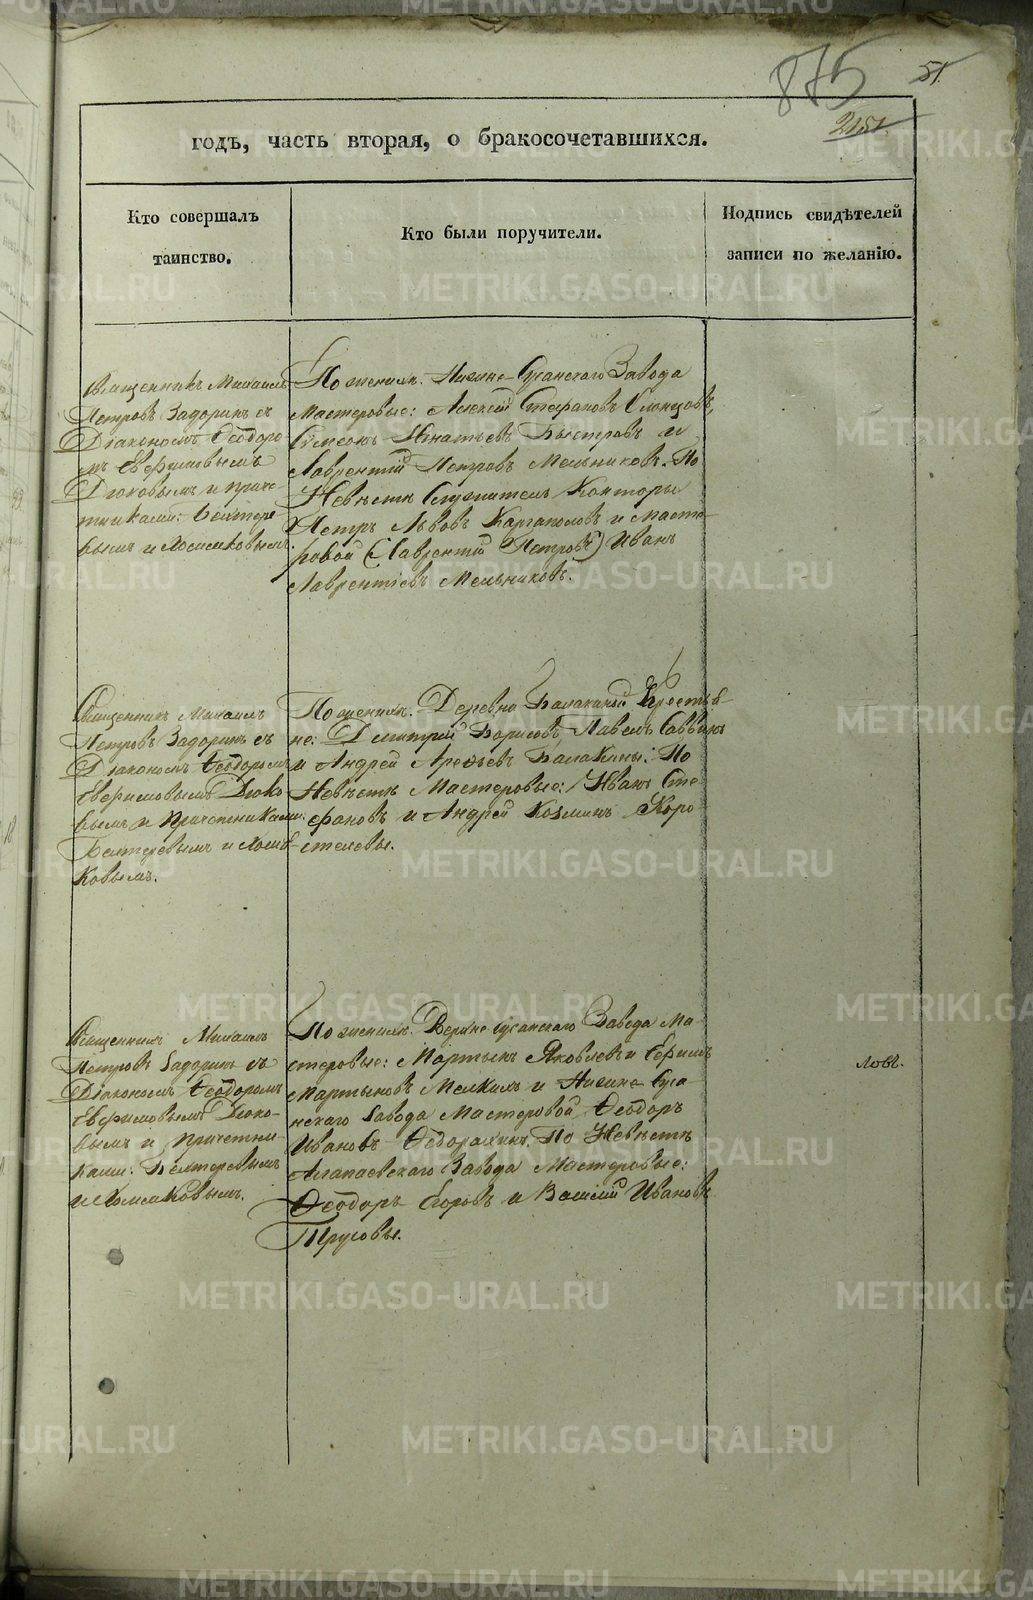 875
51.
2151.
годъ, часть вторая, о бракосочетавшихся.
Кто совершалъ
таинство.
Кто были поручители.
Подпись свидѣтелей
записи по желанію.
Священникъ Михаилъ
Петровъ Задоринъ съ
Діакономъ Ѳеодоро
мъ Евфимовымъ
Дюковымъ и приче
тниками: Бехтере
вымъ и Хомяковымъ.
По женихѣ. Нижне-Сусанскаго Завода
Мастеровые: Алексѣй Стефановъ Слонцовъ,
Симеонъ Игнатьевъ Быстровъ и
Лаврентій Петровъ Мельниковъ. По
Невѣстѣ Служитель Конторы
Петръ Львовъ Каргаполовъ и Масте-
ровой (Лаврентій Петровъ) Иванъ
Лаврентіевъ Мельниковъ.
Священникъ Михаилъ
Петровъ Задоринъ съ
Діакономъ Ѳеодоромъ
Евфимовымъ Дюко
вымъ и Причетниками:
Бехтеревымъ и Хомя
ковымъ.
По женихѣ. Деревни Балакиной Крестья
не: Дмитрій Борисовъ, Павелъ Саввинъ
и Андрей Арефьевъ Балакины: По
Невѣстѣ Мастеровые: Иванъ Сте
фановъ и Андрей Козминъ Коро
стелевы.
Священникъ Михаилъ
Петровъ Задоринъ съ
Діакономъ Ѳеодоромъ
Евфимовымъ Дюко-
вымъ и Причетни-
ками: Бехтеревымъ
и Хомяковымъ.
По женихѣ. Верхне Сусанскаго Завода Ма-
стеровые: Мартынъ Яковлевъ и Ефимъ
Мартыновъ Мелкихъ и Нижне-Суса
нскаго Завода Мастеровой Ѳеодоръ
Ивановъ Ѳедорахинъ. По Невѣстѣ
Алапаевскаго Завода Мастеровые:
Ѳеодоръ Егоровъ и Василій Ивановъ
Трусовы.
ловъ.
METRIKI.GASO-URAL.RU